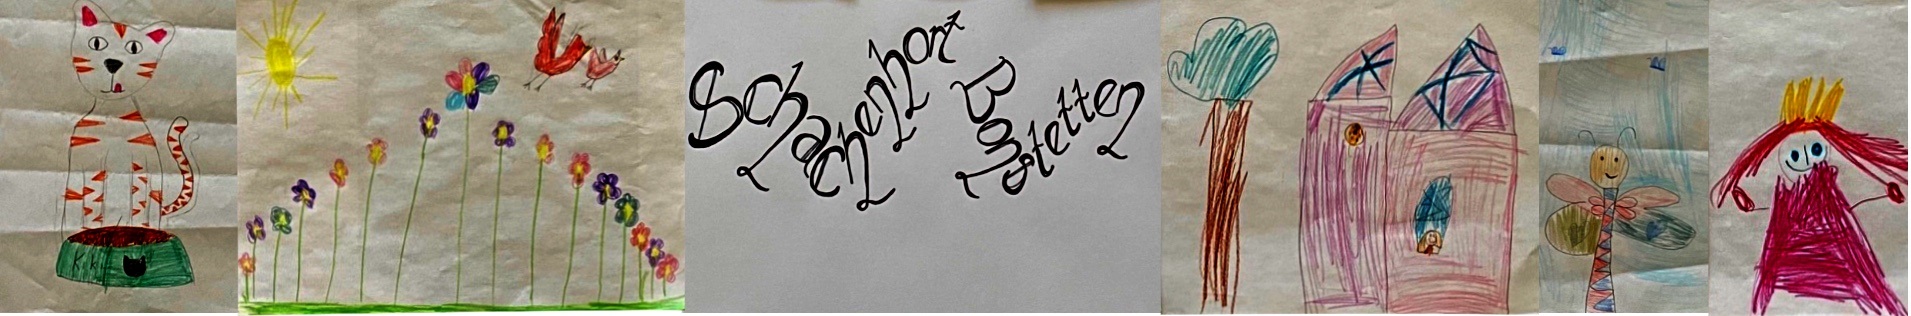 Schachenhort
Bonstetten
KK